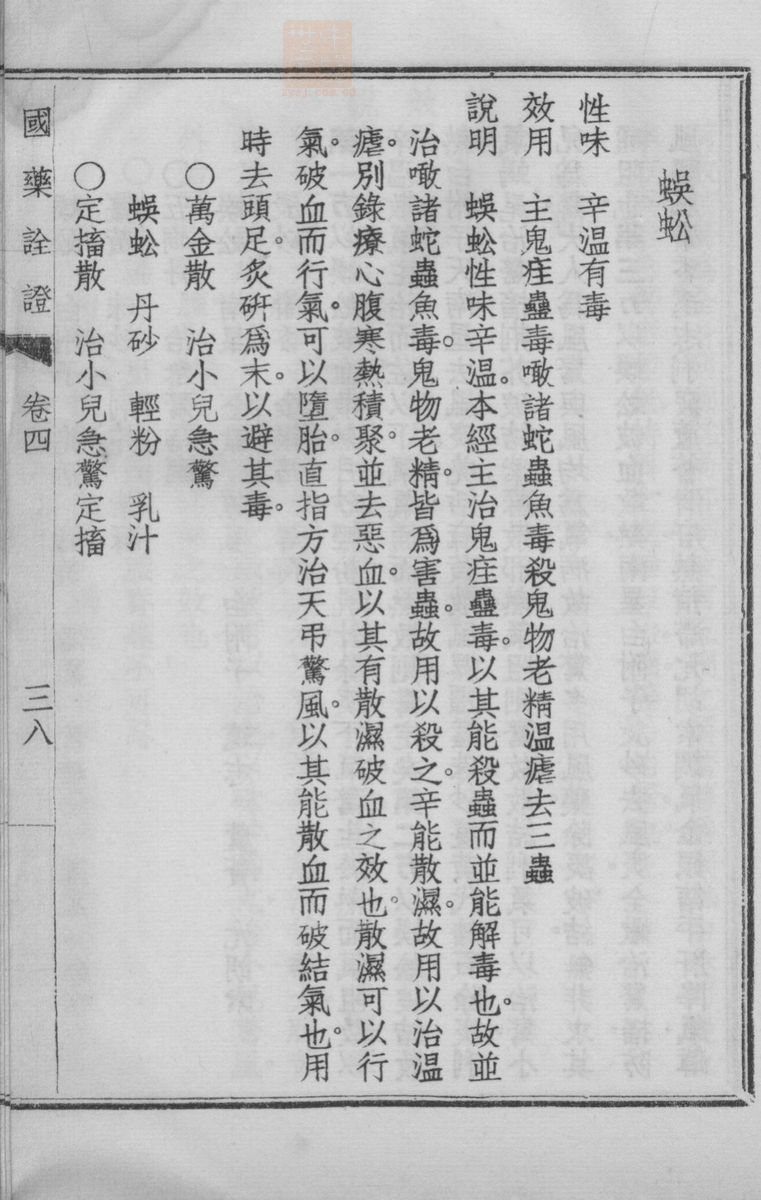 蜈蚣
性味　辛温有毒
效用　主鬼疰蠱毒噉諸蛇蟲魚毒殺鬼物老精温瘧去三蟲
說明　蜈蚣性味辛温。本經主治鬼疰蠱毒。以其能殺蟲而並能解毒也。故並
治噉諸蛇蟲魚毒。鬼物老精。皆爲害蟲。故用以殺之。辛能散濕。故用以治温
瘧。別錄療心腹寒熱積聚。並去惡血。以其有散濕破血之效也。散濕可以行
氣。破血而行氣。可以墮胎。直指方治天弔驚風。以其能散血而破結氣也。用
時去頭足。炙硏爲末。以避其毒。
○萬金散　治小兒急驚
蜈蚣　丹砂　輕粉　乳汁
○定搐散　治小兒急驚定搐
國藥詮證　卷四　三八